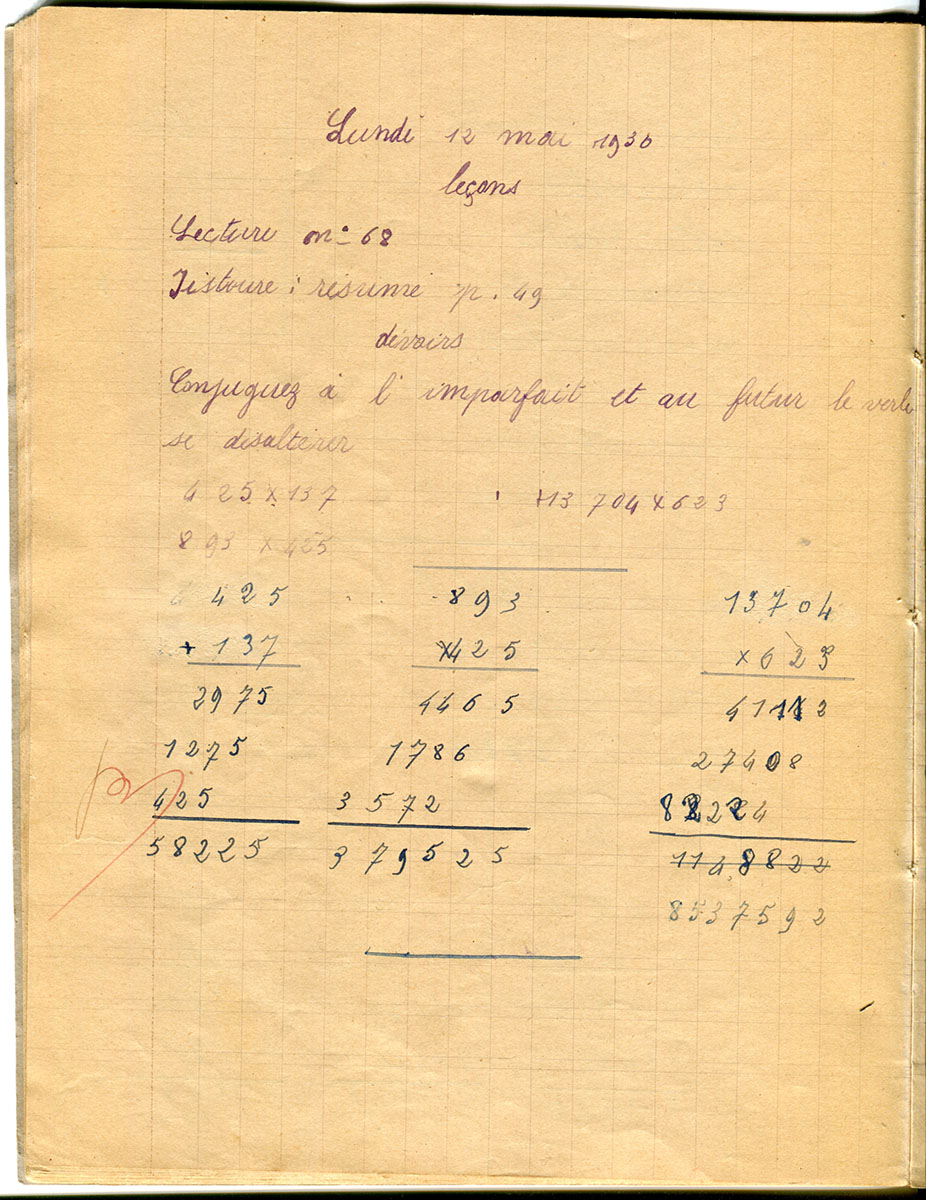 Lundi 12 mai 1930
leçons
Lecture n° 68
Histoire : résumé p. 49
devoirs
Conjuguez à l'imparfait et au futur le verbe
se désaltérer
425 x 137 13 704 x 623
893 x 425
425 893 13704
+ 137 x 425 x 623
2975 4465 41112
1275 1786 27408
425 3572 82224
58225 379525 1148822
8537592